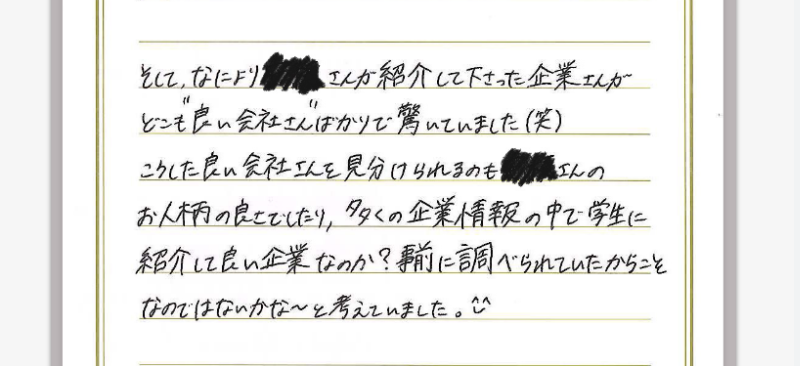 そして、なにより さんが紹介して下さった企業さんが
どこも"良い会社さん"ばかりで驚いていました(笑)
こうした良い会社さんを見分けられるのも さんの
お人柄の良さでしたり、多くの企業情報の中で学生に
紹介して良い企業なのか?事前に調べられていたからこそ
なのではないかな〜と考えていました。^^